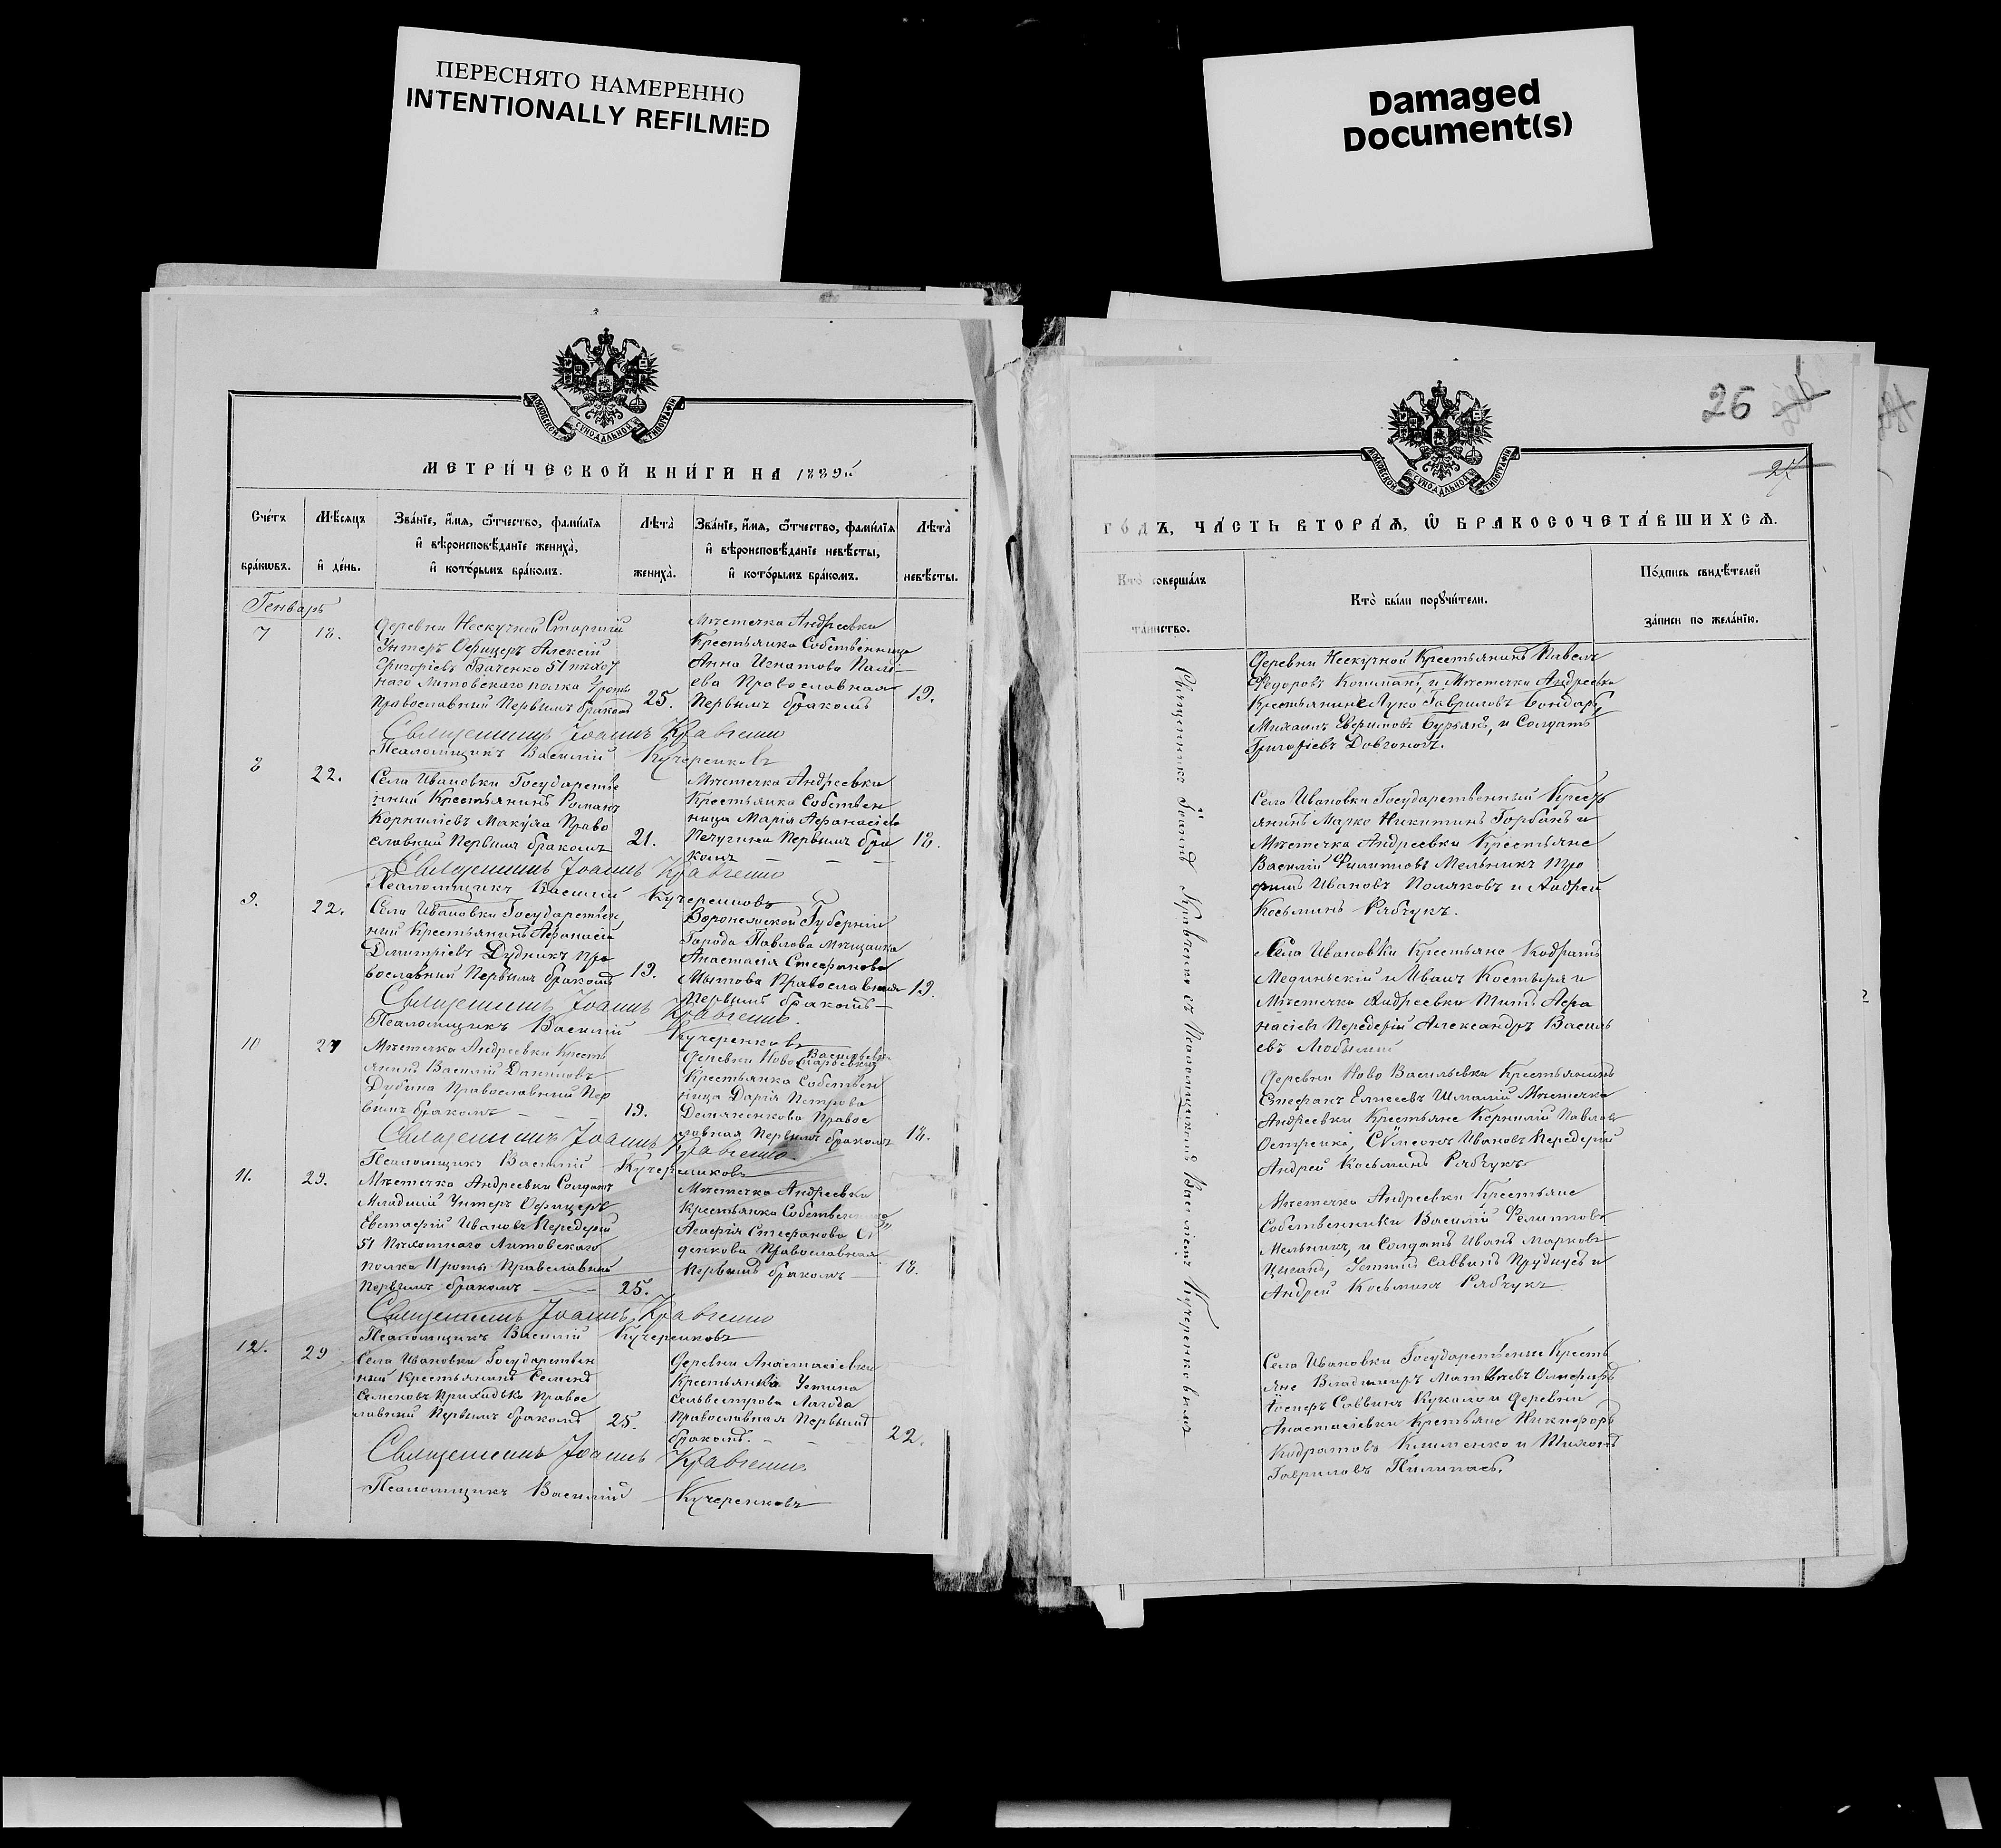 ПЕРЕСНЯТО НАМЕРЕННО
INTENTIONALLY REFILMED
Damaged
Document(s)
МОСКОВСКОЙ СУНОДАЛЬНОЙ ТИПОГРАФІИ
МЕТРИ́ЧЕСКОЙ КНИ́ГИ НА 1889й
Сче́тъ бра́кѡвъ.
Мѣ́сяцъ и҆ де́нь.
Зва́нїе, и҆́мѧ, ѻ҆́тчество, фами́лїѧ и҆ вѣроисповѣ́данїе жениха̀, и҆ кото́рымъ бра́комъ.
Лѣта̀ жениха̀.
Зва́нїе, и҆́мѧ, ѻ҆́тчество, фами́лїѧ и҆ вѣроисповѣ́данїе невѣ́сты, и҆ кото́рымъ бра́комъ.
Лѣта̀ невѣ́сты.
Генварь
7
18.
Деревни Нескучной Старшій
Унтеръ Офицеръ Алексій
Григоріевъ Ткаченко 51 пѣхот
наго Литовскаго полка
Православный Первымъ бракомъ
25.
Мѣстечка Андреевки
Крестьянка Собственница
Анна Игнатова Пали-
ева Православная
Первымъ бракомъ
19.
Священникъ Іоаннъ Кравченко
Псаломщикъ Василій Кучеренковъ
8
22.
Села Ивановки Государстве
нный Крестьянинъ Романъ
Корниліевъ Макуха Право
славный Первымъ бракомъ
21.
Мѣстечка Андреевки
Крестьянка Собствен
ница Марія Афанасіева
Печугина Первымъ бра
комъ
18.
Священникъ Іоаннъ Кравченко
Псаломщикъ Василій Кучеренковъ
9.
22.
Села Ивановки Государствен
ный Крестьянинъ Афанасій
Дмитріевъ Дудникъ Пра
вославный Первымъ бракомъ
19.
Воронежской Губерніи
Города Павлова Мѣщанка
Анастасія Стефанова
Мытова Православная
Первымъ бракомъ
19.
Священникъ Іоаннъ Кравченко.
Псаломщикъ Василій Кучеренковъ
10
27
Мѣстечка Андреевки Кресть
янинъ Василій Даниловъ
Дубина Православный Пер
вымъ бракомъ
19.
Васильевки
Деревни Ново
Крестьянка Собствен
ница Дарія Петрова
Демяненкова Правос
лавная Первымъ бракомъ
18.
Священникъ Іоаннъ Кравченко.
Псаломщикъ Василій Кучеренковъ
11.
29.
Мѣстечка Андреевки Солдатъ
Младшій Унтеръ Офицеръ
Евстафій Ивановъ Передерій
51 Пѣхотнаго Литовскаго
полка Православный
Первымъ бракомъ
25.
Мѣстечка Андреевки
Крестьянка Собственница
Агафія Стефанова
денкова Православная
Первымъ бракомъ
18.
Священникъ Іоаннъ Кравченко
Псаломщикъ Василій Кучеренковъ
12.
29
Села Ивановки Государствен
ный Крестьянинъ Семенъ
Семеновъ Приходько Правос
лавный Первымъ бракомъ
25.
Деревни Анастасіевки
Крестьянка Устина
Сельвестрова Лагода
Православная Первымъ
бракомъ.
22.
Священникъ Іоаннъ Кравченко
Псаломщикъ Василій Кучеренковъ
26
МОСКОВСКОЙ СУНОДАЛЬНОЙ ТИПОГРАФІИ
ГО́ДЪ, ЧА́СТЬ ВТОРА́Ѧ, Ѽ БРАКОСОЧЕТА́ВШИХСѦ.
Кто̀ соверша́лъ та́инство.
Кто̀ бы́ли порꙋчи́тели.
По́дпись свидѣ́телей за́писи по жела́нїю.
Священникъ Іоаннъ Кравченко съ Псаломщикомъ Василіемъ Кучеренковымъ
Деревни Нескучной Крестьянинъ Павелъ
Федоровъ и Мѣстечка Андреевки
Крестьянинъ Лука Гавриловъ Бондарь
Михаилъ Евфимовъ Бурлай, и Солдатъ
Григорій Довгополъ.
Села Ивановки Государственный Кресть
янинъ Марко Никитинъ Горбань и
Мѣстечка Андреевки Крестьяне
Василій Филиповъ Мельникъ Тро
фимъ Ивановъ Поляковъ и Андрей
Косьминъ Рябчукъ.
Села Ивановки Крестьяне Кодратъ
Мединскій и Иванъ Костыря и
Мѣстечка Андреевки Титъ Афа
насіевъ Передерій Александръ Василь
евъ Любымый
Деревни Ново Васильевки Крестьянинъ
Стефанъ Елисеевъ Шмалій Мѣстечка
Андреевки Крестьяне Корнилій Павловъ
Остренко, Сѵмеонъ Ивановъ Передерій
Андрей Косьминъ Рябчукъ
Мѣстечка Андреевки Крестьяне
Собственники Василій Филиповъ
Мельникъ, и Солдатъ Иванъ Марковъ
Цыганъ, Саввинъ Прудиусъ и
Андрей Косьминъ Рябчукъ
Села Ивановки Государственные Кресть
яне Владимиръ Матвѣевъ Олиферъ
Іосифъ Саввинъ Кукало и Деревни
Анастасіевки Крестьяне Никифоръ
Кодратовъ Клименко и Тихонъ
Гавриловъ Пилипасъ.